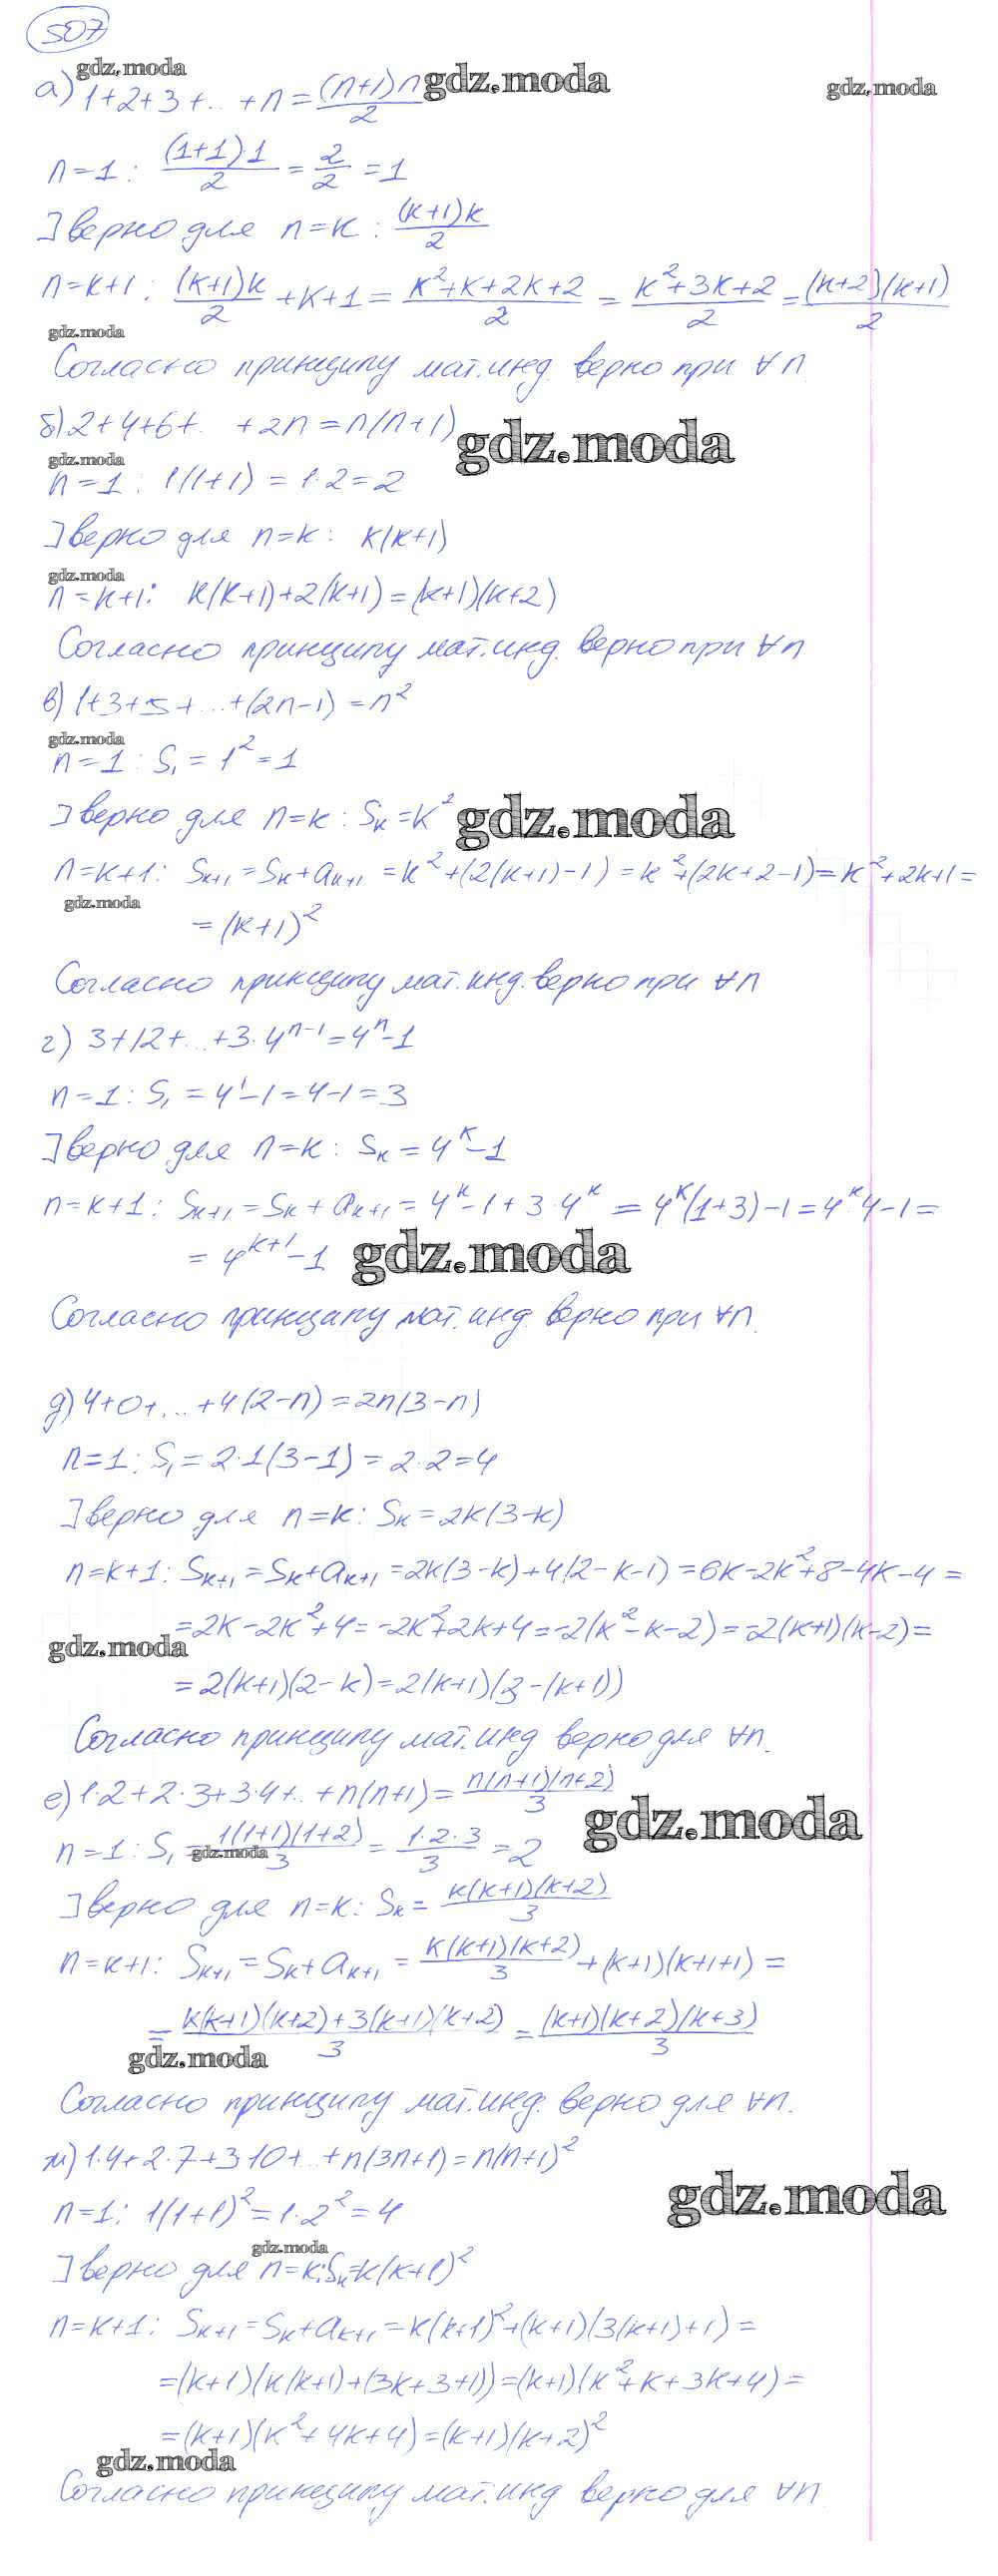 507
gdz.moda
а) 1+2+3+... +n = (n+1)n/2 gdz.moda gdz.moda
n=1: (1+1)·1/2 = 2/2 = 1
] верно для n=k: (k+1)k/2
n=k+1: (k+1)k/2 + k+1 = k²+k+2k+2/2 = k²+3k+2/2 = (k+2)(k+1)/2
gdz.moda
Согласно принципу мат.инд. верно при ∀n
б) 2+4+6+.. +2n = n(n+1) gdz.moda
gdz.moda
n=1: 1(1+1) = 1·2=2
] верно для n=k: k(k+1)
gdz.moda
n=k+1: k(k+1)+2(k+1)=(k+1)(k+2)
Согласно принципу мат.инд. верно при ∀n
в) 1+3+5+...+(2n-1)=n²
gdz.moda
n=1: S₁ = 1² = 1
] верно для n=k: Sₖ=k² gdz.moda
n=k+1: Sₖ₊₁=Sₖ+aₖ₊₁ = k²+(2(k+1)-1) = k²+(2k+2-1)=k²+2k+1=
gdz.moda
=(k+1)²
Согласно принципу мат.инд. верно при ∀n
г) 3+12+...+3·4ⁿ⁻¹=4ⁿ-1
n=1: S₁ = 4¹-1=4-1=3
] верно для n=k: Sₖ = 4ᵏ-1
n=k+1: Sₖ₊₁=Sₖ+aₖ₊₁ = 4ᵏ-1+3·4ᵏ = 4ᵏ(1+3)-1=4ᵏ·4-1=
= 4ᵏ⁺¹-1 gdz.moda
Согласно принципу мат.инд. верно при ∀n.
д) 4+0+...+4(2-n)=2n(3-n)
n=1: S₁=2·1(3-1)=2·2=4
] верно для n=k: Sₖ=2k(3-k)
n=k+1: Sₖ₊₁=Sₖ+aₖ₊₁=2k(3-k)+4(2-k-1)=6k-2k²+8-4k-4=
=2k-2k²+4=-2k²+2k+4=-2(k²-k-2)=-2(k+1)(k-2)=
gdz.moda
=2(k+1)(2-k)=2(k+1)(3-(k+1))
Согласно принципу мат.инд верно для ∀n.
е) 1·2+2·3+3·4+..+n(n+1)= n(n+1)(n+2)/3
gdz.moda
n=1: S₁= 1(1+1)(1+2)/3 = 1·2·3/3 =2
gdz.moda
] верно для n=k: Sₖ= k(k+1)(k+2)/3
n=k+1: Sₖ₊₁=Sₖ+aₖ₊₁ = k(k+1)(k+2)/3 +(k+1)(k+1+1)=
= k(k+1)(k+2)+3(k+1)(k+2)/3 = (k+1)(k+2)(k+3)/3
gdz.moda
Согласно принципу мат.инд. верно для ∀n.
ж) 1·4+2·7+3·10+...+n(3n+1)=n(n+1)²
gdz.moda
n=1: 1(1+1)²=1·2²=4
gdz.moda
] верно для n=k: Sₖ=k(k+1)²
n=k+1: Sₖ₊₁=Sₖ+aₖ₊₁=k(k+1)²+(k+1)(3(k+1)+1)=
=(k+1)(k(k+1)+(3k+3+1))=(k+1)(k²+k+3k+4)=
=(k+1)(k²+4k+4)=(k+1)(k+2)²
gdz.moda
Согласно принципу мат.инд верно для ∀n